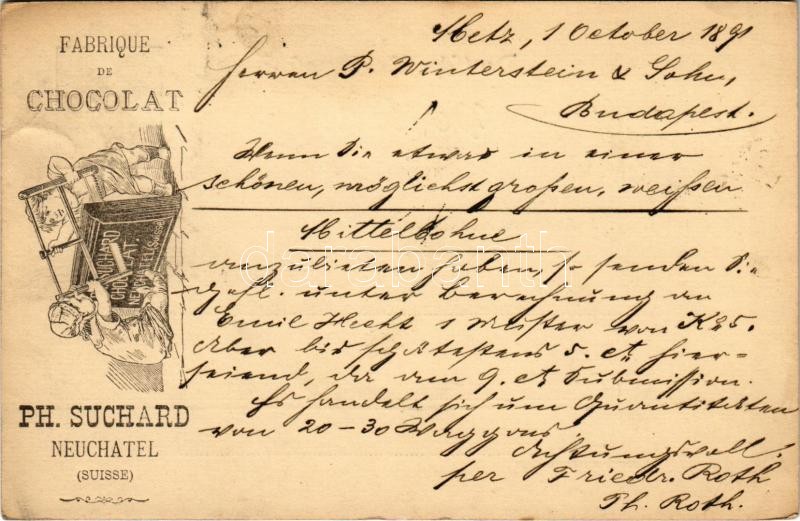 FABRIQUE
DE
CHOCOLAT
SUCHARD
CHOCOLAT
NEUCHATEL (Suisse)
PH. SUCHARD
NEUCHATEL
(SUISSE)
Metz, 1 October 1891
Herren P. Winterstein & Sohn,
Budapest.
Wenn Sie etwas in einer
schönen, möglichst großen, weißen
Mittelbohne
anzubieten haben, so senden Sie
gefl. unter Berechnung an
Emil Hecht 1 Muster von K° 5.
Aber bis spätestens 5. ct. hier-
seiend, da am 9. ct. Submission.
Es handelt sich um Quantitäten
von 20-30 Waggons
Achtungsvoll.
per Friedr. Roth
Ph. Roth.
darabanth